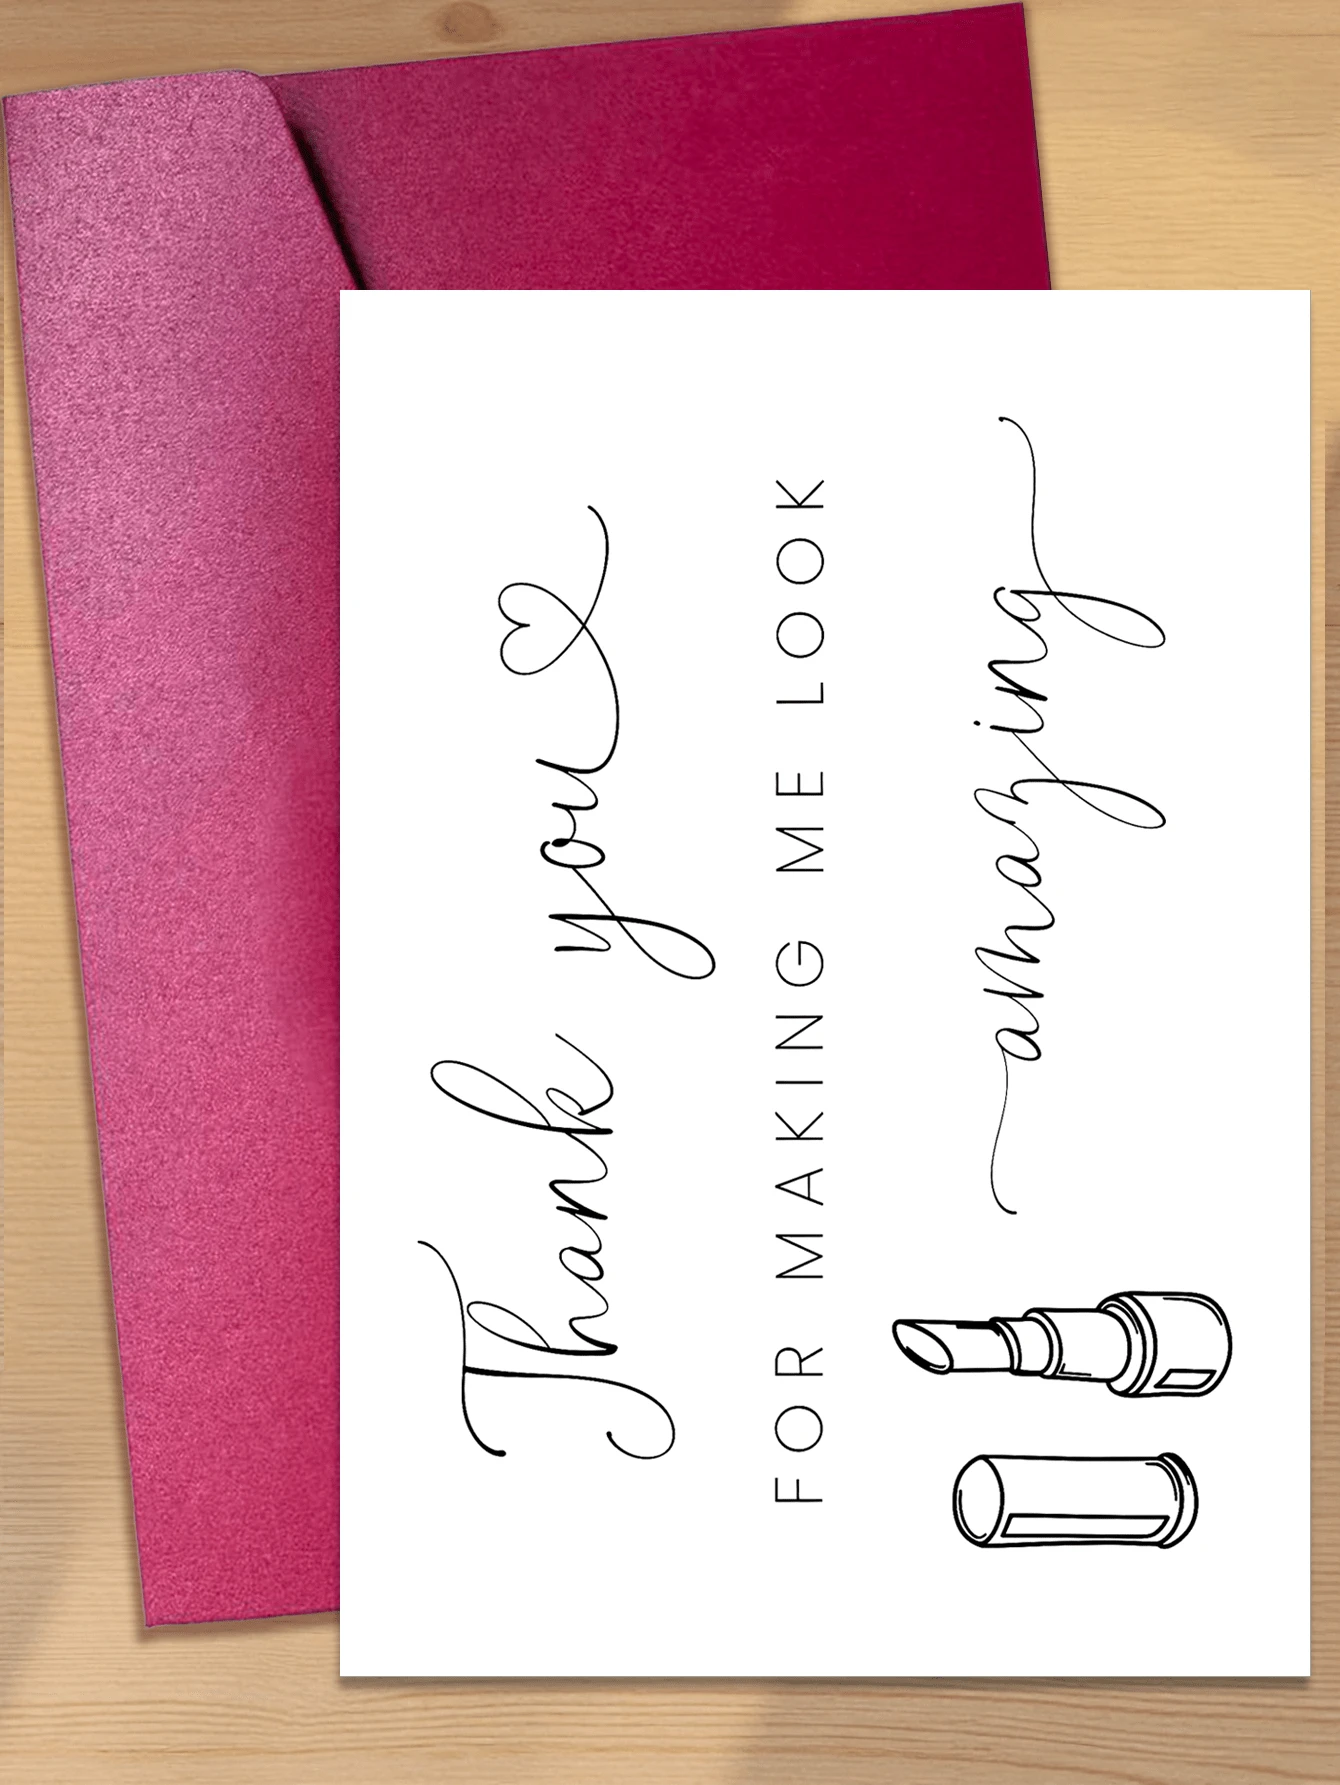 Thank you
FOR MAKING ME LOOK
amazing